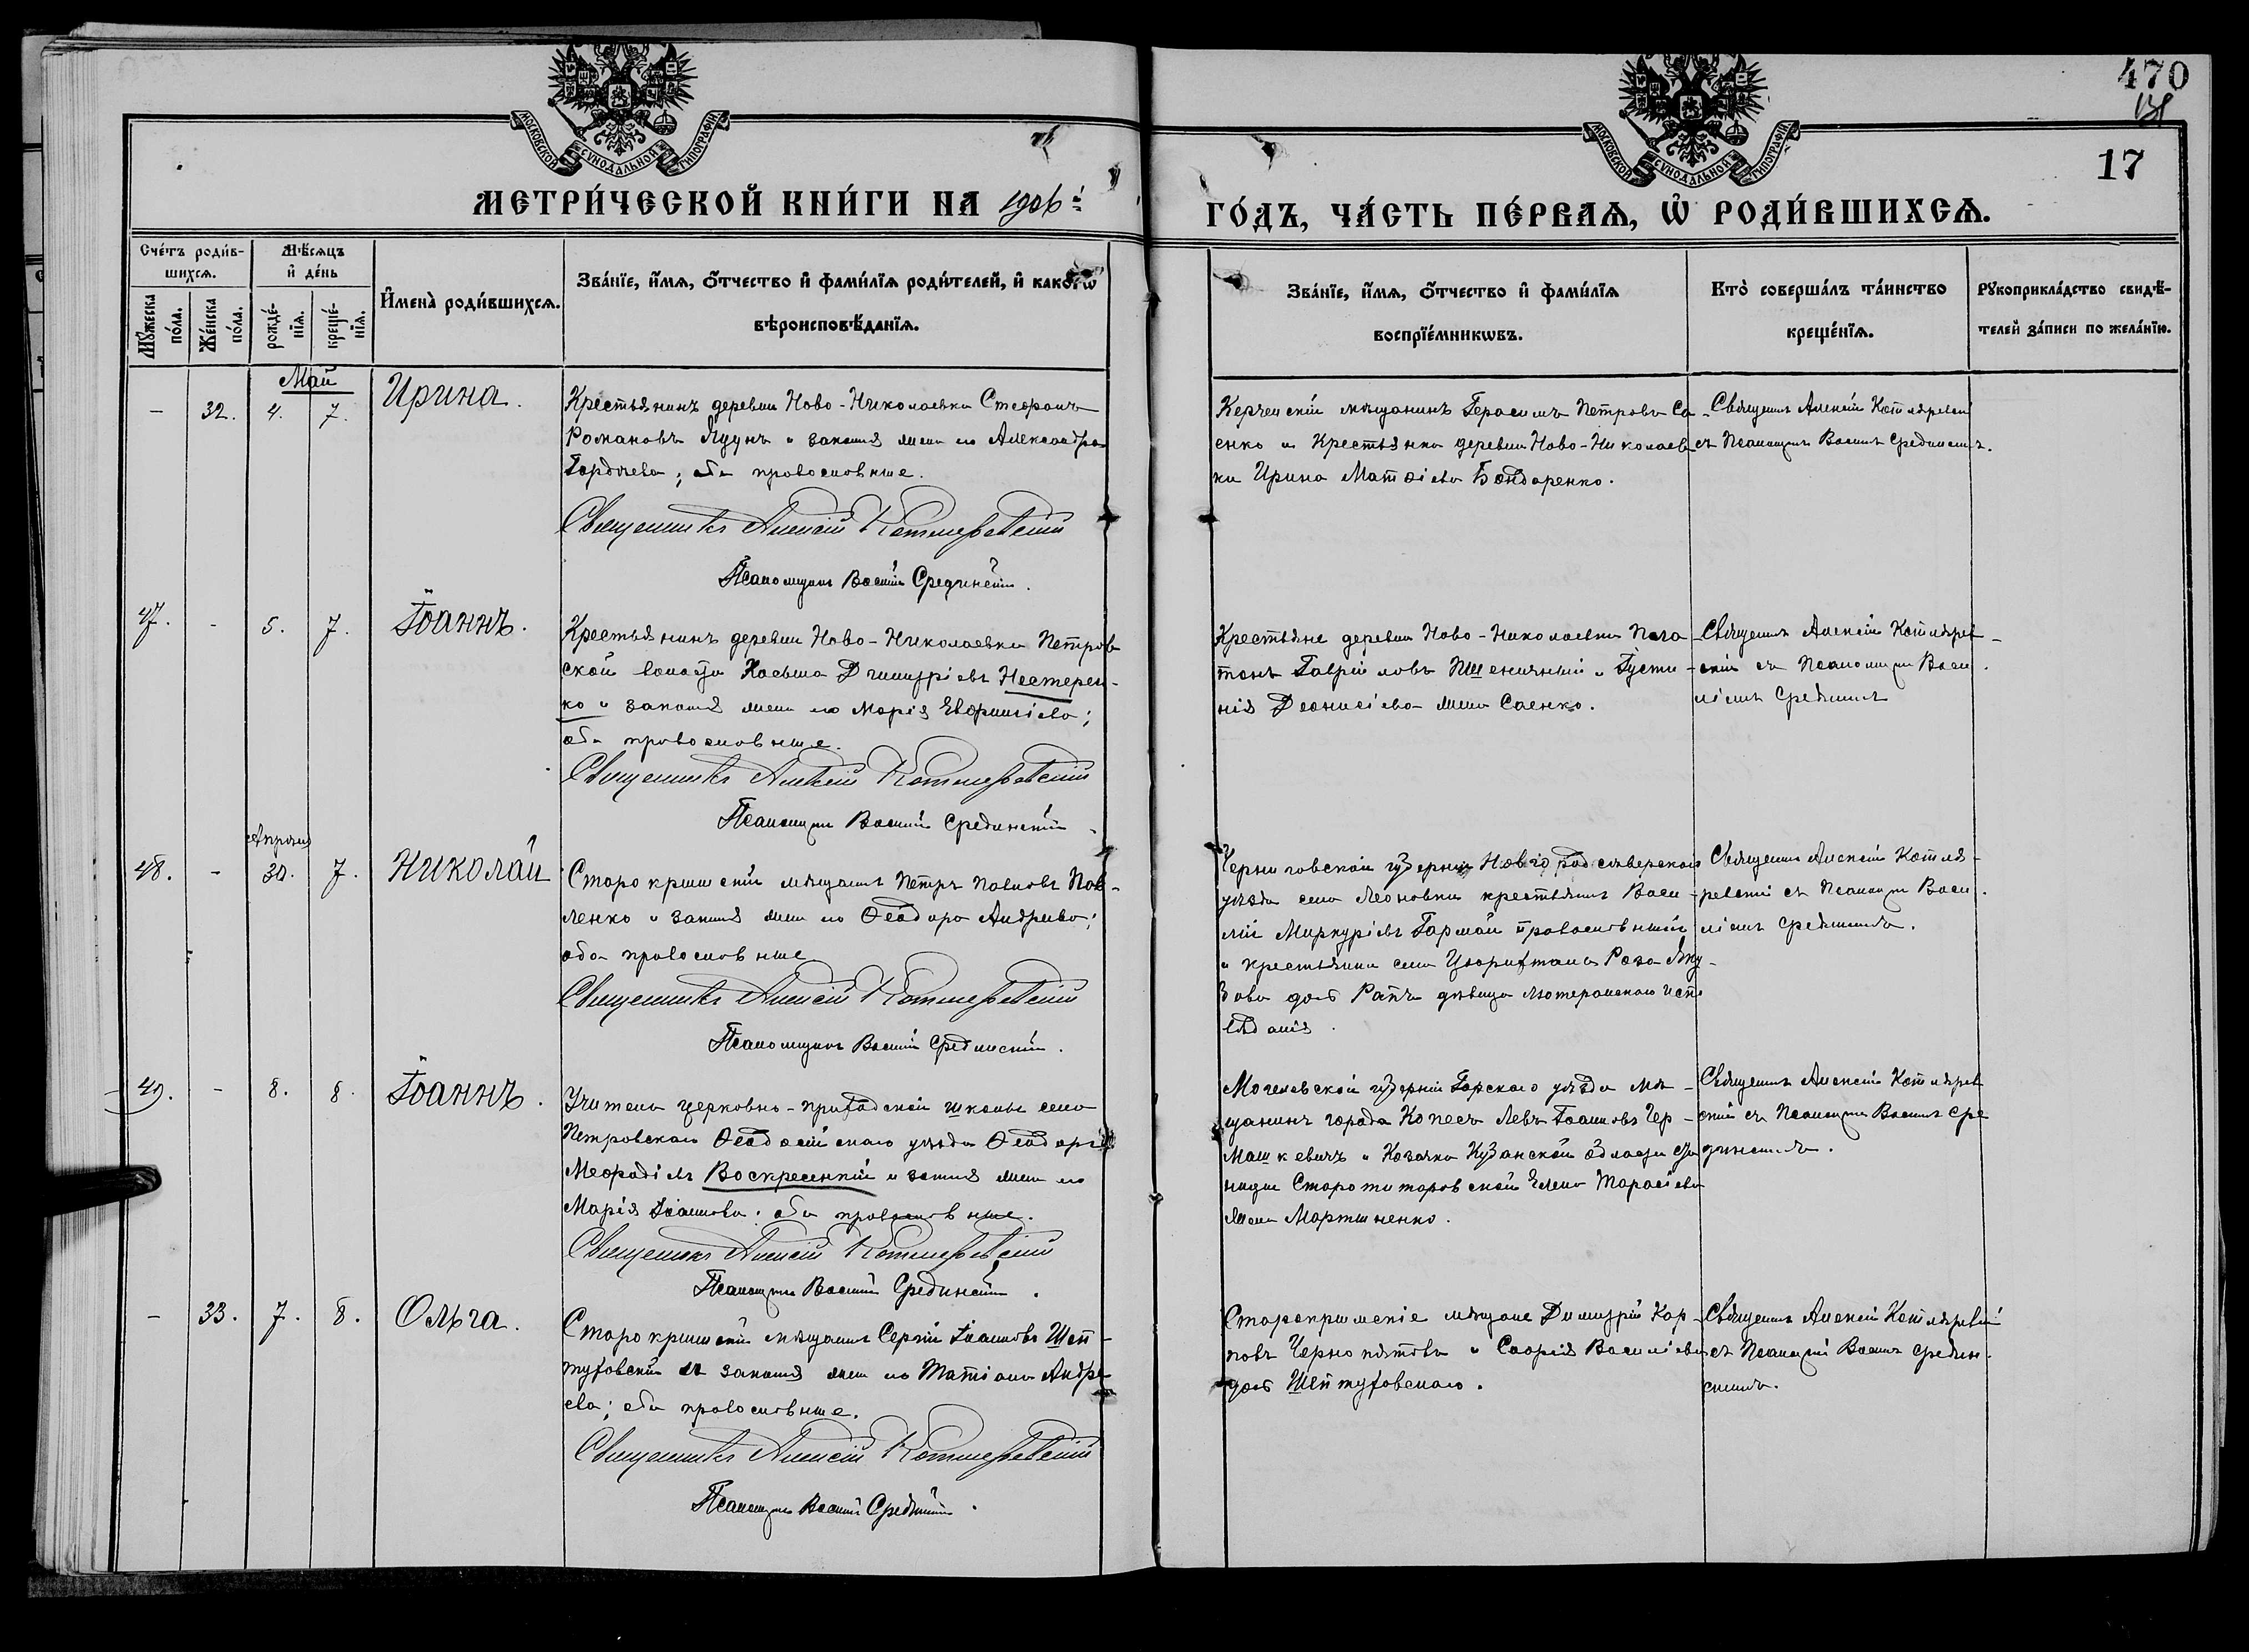 470
17
МОСКОВСКОЙ СѴНОДАЛЬНОЙ ТИПОГРАФІИ
МОСКОВСКОЙ СѴНОДАЛЬНОЙ ТИПОГРАФІИ
МЕТРИ́ЧЕСКОЙ КНИ́ГИ НА 1906й
ГО́ДЪ, ЧА́СТЬ ПЕ́РВАѦ, Ѽ РОДИ́ВШИХСѦ.
Сче́тъ роди́в-
шихсѧ.
Мꙋ́жеска по́ла.
Же́нска по́ла.
Мѣ́сѧцъ
и҆ де́нь
рожде́-
нїѧ.
креще́-
нїѧ.
И҆мена̀ роди́вшихсѧ.
Зва́нїе, и҆́мѧ, ѻ҆́тчество и҆ фами́лїѧ роди́телей, и҆ како́гѡ
вѣроисповѣ́данїѧ.
Зва́нїе, и҆́мѧ, ѻ҆́тчество и҆ фами́лїѧ
воспрїе́мникѡвъ.
Кто̀ соверша́лъ та́инство
креще́нїѧ.
Рꙋкоприкла́дство свидѣ́-
телей за́писи по жела́нїю.
Май
– 32. 4. 7. Ирина.
Крестьянинъ деревни Ново-Николаевки Стефанъ
Романовъ и законная жена его Александра
Гордѣева; оба православные.
Священникъ Алексій Котляревскій
Псаломщикъ Василій Срединскій.
Керченскій мѣщанинъ Герасимъ Петровъ Са
енко и Крестьянка деревни Ново-Николаев
ки Ирина Матѳіева Бондаренко.
Священникъ Алексій Котляревскій
съ Псаломщик Василіем Срединским.
47. - 5. 7. Іоаннъ.
Крестьянинъ деревни Ново-Николаевки Петров
ской волости Косьма Димитріевъ Нестерен-
ко и законная жена его Марія Евфиміева;
оба православные.
Священникъ Алексій Котляревскій
Псаломщикъ Василій Срединскій
Крестьяне деревни Ново-Николаевки Пла
тонъ Гавріиловъ Пшеничный и Іусти-
нія Діонисіева жена Саенко.
Священникъ Алексій Котлярев-
скій съ Псаломщик Васи
ліемъ Срединскимъ
Апрѣля
48. - 30. 7. Николай
Старокрымскій мѣщанинъ Петръ Павловъ Пав-
ленко и законная жена его Ѳеодора Андреева;
оба православные
Священникъ Алексій Котляревскій
Псаломщикъ Василій Срединскій.
Черниговской губерніи Новгородсѣверскаго
уѣзда села Леоновки крестьянинъ Васи-
лій Меркуріевъ Гармай православный
и крестьянка села Цюрихталя Роза Яку-
бова дочь Рапъ дѣвица лютеранскаго испо
вѣданія.
Священникъ Алексій Котля-
ревскій съ Псаломщик Васи
ліемъ Срединскимъ.
49. - 8. 8. Іоаннъ.
Учитель церковно-приходской школы села
Петровскаго Ѳеодосійскаго уѣзда Ѳеодоръ
Меѳодіевъ Воскресенскій и законная жена его
Марія Іоаннова; оба православные.
Священникъ Алексій Котляревскій
Псаломщикъ Василій Срединскій.
Могилевской губерніи Горскаго уѣзда мѣ-
щанинъ города Копесъ Левъ Іоанновъ Чер-
машкевичъ и Козачка Кубанской области ста
ницы Старотиторовской Елена Тарасіева
жена Мартыненко.
Священникъ Алексій Котлярев
скій съ Псаломщик Василіем Сре
динскимъ.
- 33. 7. 8. Ольга.
Старокрымскій мѣщанинъ Сергій Іоанновъ Шеп-
туховскій и законная жена его Татіана Андре
ева; оба православные.
Священникъ Алексій Котляревскій
Псаломщикъ Василій Срединскій.
Старокрымскіе мѣщане Димитрій Кар-
повъ Чернопятовъ и Софія Василіева
дочь Шептуховскаго.
Священникъ Алексій Котляревскій
съ Псаломщик Василіем Средин
скимъ.